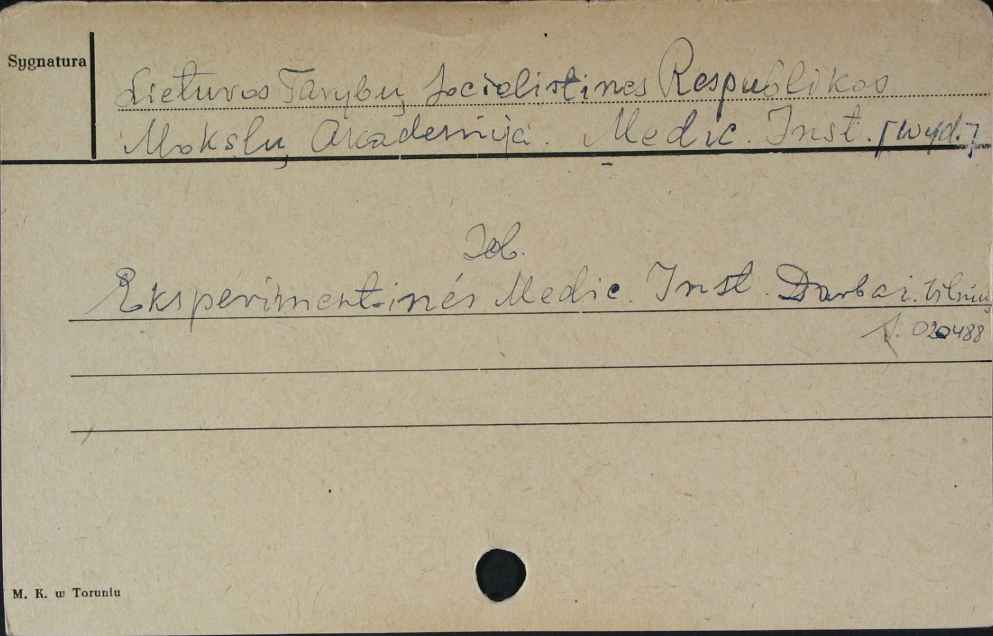 Sygnatura
Lietuvos Tarybų Socialistinės Respublikos
Mokslų Akademija. Medic. Inst. [wyd.]
Zob.
Eksperimentinės Medic. Inst. Darbai. Vilnius
020488
M. K. w Toruniu